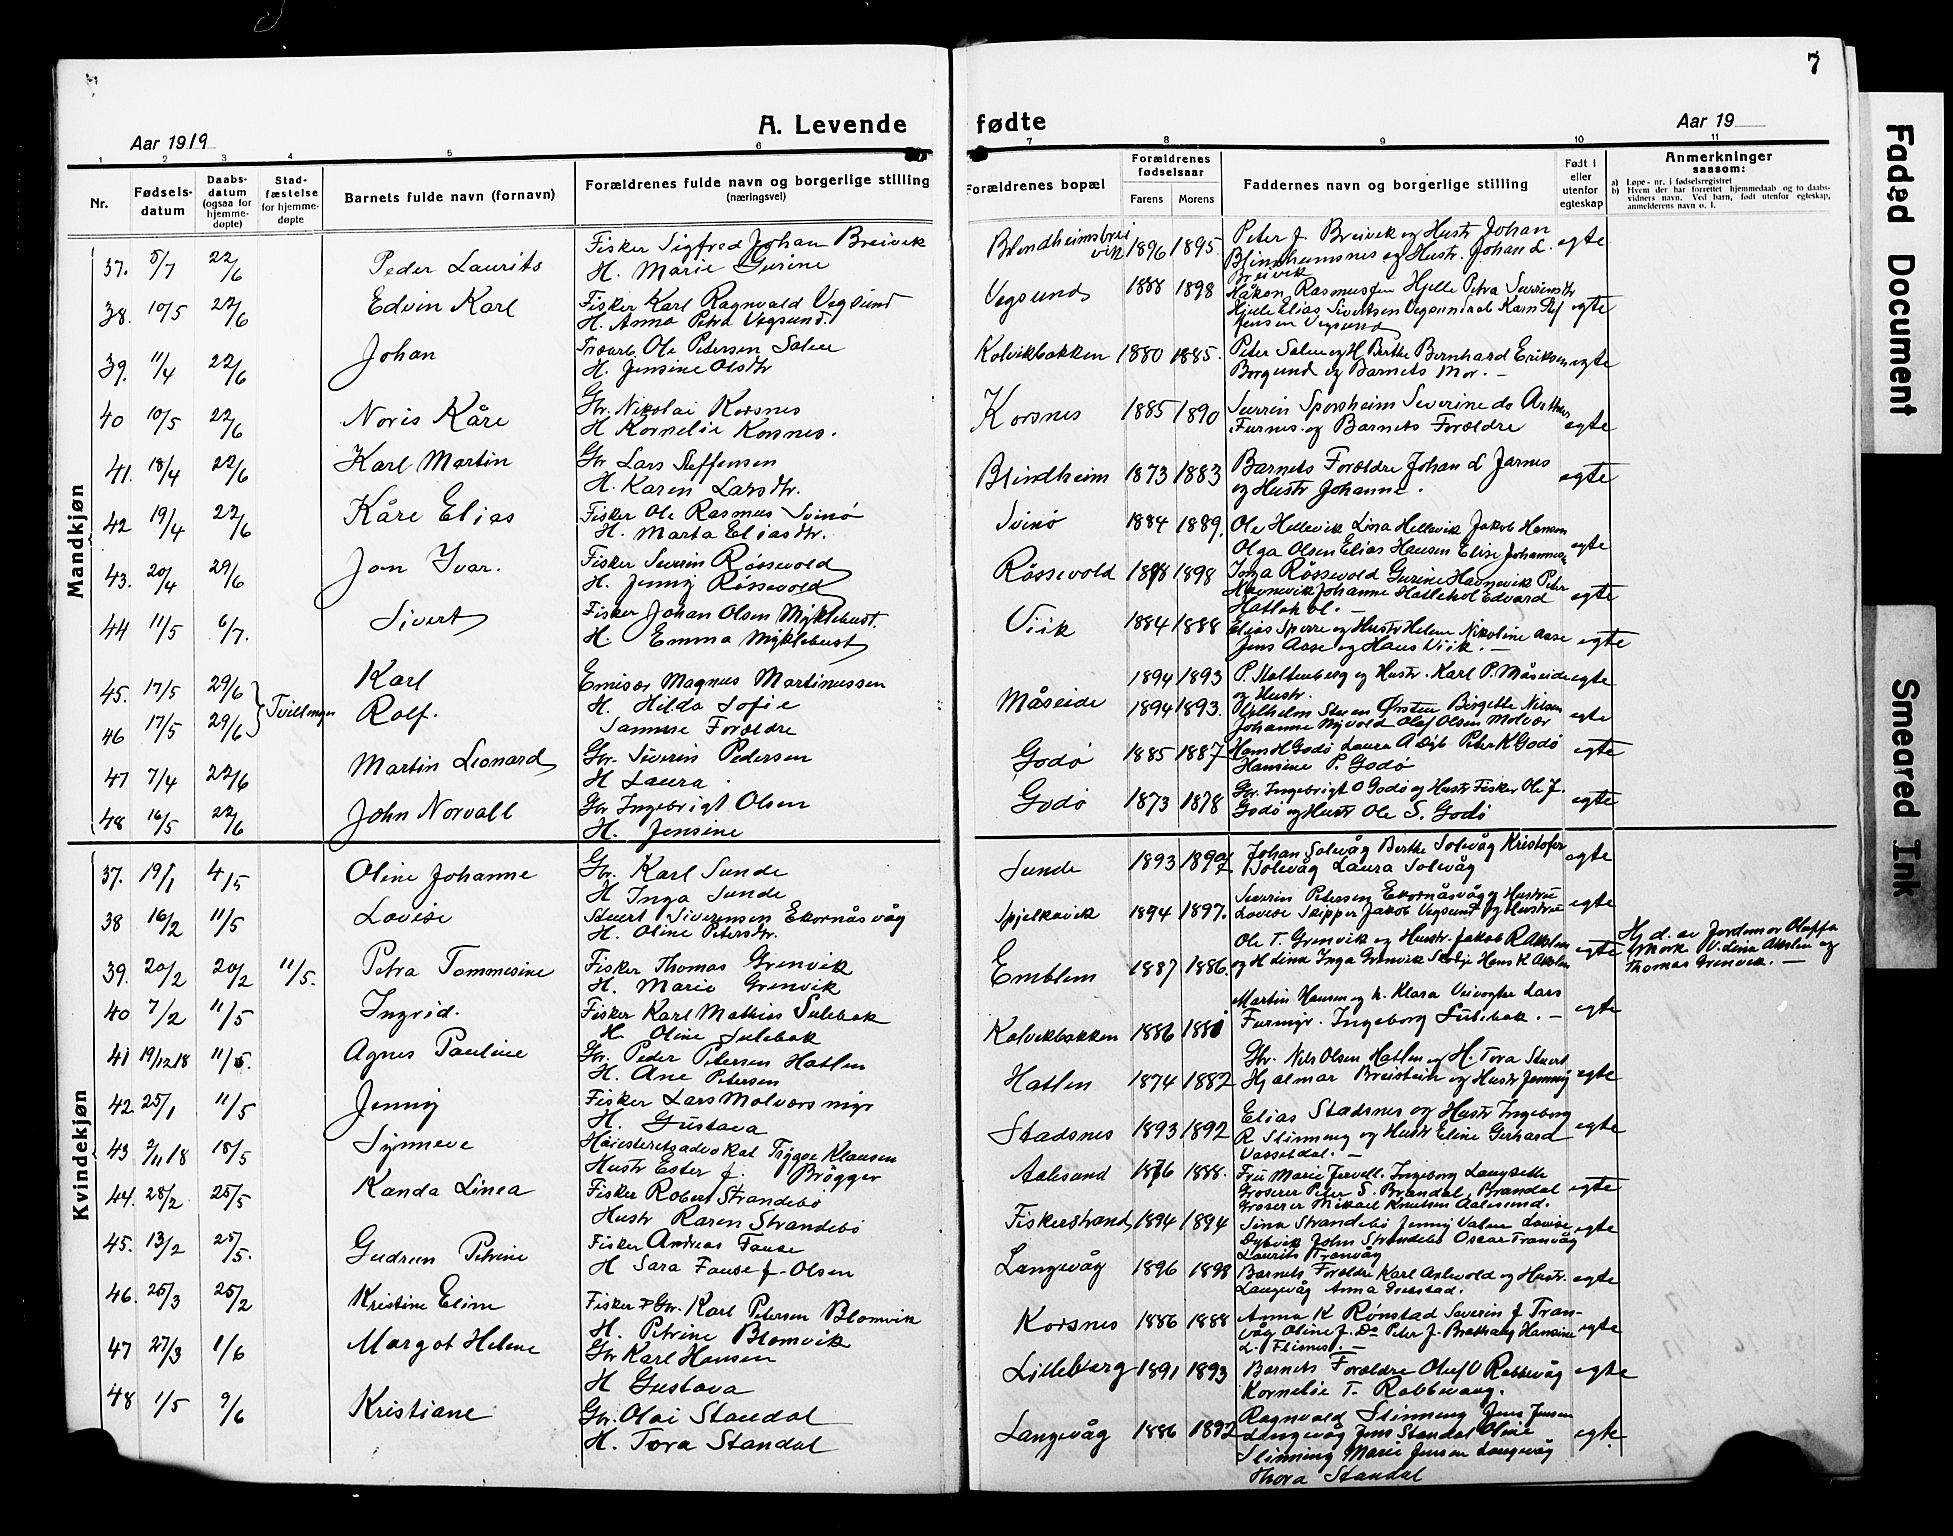 7
A. Levende fødte
Aar 1919
Aar 19
1 2 3 4 5 6 7 8 9 10 11
Nr.
Fødsels-
datum
Daabs-
datum
(ogsaa for
hjemme-
døpte)
Stad-
fæstelse
for hjemme-
døpte
Barnets fulde navn (fornavn)
Forældrenes fulde navn og borgerlige stilling
(næringsvei)
Forældrenes bopæl
Forældrenes
fødselsaar
Farens Morens
Faddernes navn og borgerlige stilling
Født i
eller
utenfor
egteskap
Anmerkninger
saasom:
a) Løpe-nr. i fødselsregistret
b) Hvem der har forrettet hjemmedaab og to daabs-
vidners navn. Ved barn, født utenfor egteskap,
anmelderens navn o. l.
Mandkjøn
37. 5/7 22/6 Peder Laurits
Fisker Sigfred Johan Breivik
H. Marie Gurine
1896 1895
Peter J. Breivik og Hustr Johan
Blindheimsnes og Hustr. Johan L.
Breivik
egte
38. 10/5 22/6 Edvin Karl
Fisker Karl Ragnvald Vegsund
H. Anna Petra Vegsund.
Vegsund 1888 1898
Håkon Rasmussen Hjelle Petra
Hjelle Elias Sivertsen
Jensen Vegsund
egte
39. 11/4 22/6 Johan
Ole Petersen
H. Jensine Olsdtr
Kolvikbakken 1880 1885.
Bernhard Eriksen
Borgund og Barnets Mor. -
egte
40 10/5 22/6 Noris Kåre
Gbr. Nikolai Korsnes
H Kornelie Korsnes.
Korsnes 1885 1890
Severin Sporsheim Severine do
Furnes. og Barnets Forældre
egte
41. 18/4 22/6 Karl Martin
Gbr Lars Steffensen
H. Karen Larsdtr.
Blindheim 1873 1883
Barnets Forældre Johan L Jarnes
og Hustr Johanne.
egte
42 19/4 22/6 Kåre Elias
Fisker Ole Rasmus Svinø
H. Marta Eliasdtr.
Svinø 1884 1889.
Ole Hellevik Lina Hellevik Jakob Hansen
Olga Olsen Elias Hansen Elise
egte
43. 20/4 29/6 Jon Ivar.
Fisker Severin Røssevold
H. Jenny Røssevold
Røssevold 1898
Inga Røssevold Gurine Havnevik Peter
Havnevik Johanne Hatlehol Edvard
Hatlehol. -
egte
44 11/5 6/7. Sivert
Fisker Johan Olsen Myklebust.
H. Emma Myklebust
Viik 1884 1888
Elias Sperre og Hustr Helene Nikoline Aase
Jens Aase og Hans Viik. -
egte
45. 17/5 29/6 Karl
Tvillinger
Emisær Magnus Martinussen
H. Hilda Sofie
Måseide 1894 1893
P. Stoltenberg og Hustr. Karl P. Måseide
og Hustr.
egte
46 17/5 29/6 Rolf.
Samme Forældre
1894 1893.
Birgitte Nilsen
Johanne Myvold Olaf Olsen Molvær
egte
47 7/4 22/6 Martin Leonard
Gbr. Severin Pedersen
H Laura.
Godø 1885 1887
Hans H Godø Laura A Peter K Godø
Hansine P. Godø
egte
48 16/5 22/6 John Norvall
Gbr Ingebrigt Olsen
H. Jensine
Godø 1873 1878
Gbr. Ingebrigt O Godø og Hustr Fisker Ole J.
Godø og Hustr Ole S. Godø
egte
Kvindekjøn
37. 19/1 4/5 Oline Johanne
Gbr. Karl Sunde
H Inga Sunde
Sunde 1893
Johan Solevåg Berthe Solevåg Kristofer
Solevåg Laura Solevåg
egte
38 16/2 11/5 Lovise
Stuert Siverensen Ekornåsvåg
H. Oline Petersdtr.
Spjelkavik 1894 1897.
Severin Petersen Ekornåsvåg og Hustrue
Lovise Skipper Jakob Vegsund og Hustrue
egte
39. 20/2 20/2 11/5. Petra Tommesine
Fisker Thomas Grenvik
H. Marie Grenvik
Emblem 1887 1886.
Ole T. Grenvik og Hustr. Jakob R Akslen
og H Lina Inga Grenvik Hans K Akslen
egte
Hj. d. av Jordemor
Mork V. Lina Akslen og
Thomas Grenvik. -
40 7/2 11/5 Ingrid.
Fisker Karl Mathias Sulebak
H. Oline Sulebak
Kolvikbakken 1886
Martin Hansen og h. Klara Veivogter Lars
Ingeborg Sulebak. -
egte
41 19/12 18 11/5. Agnes Pauline
Gbr. Peder Petersen Hatlen
H. Ane Petersen
Hatlen 1874 1882
Gbr. Nils Olsen Hatlen og H. Tora Stuert
Hjalmar Breistein og Hustr Jenny
egte
42 25/1 11/5 Jenny
Fisker Lars Molværsmyr
H. Gustava
Stadsnes 1893 1892
Elias Stadsnes og Hustr Ingeborg
R Slinning og Hustr Eline Gerhard
Vassetdal. -
egte
43 9/11 18 18/5 Synneve
Høiesteretsadvokat Trygve Klausen
Hustr Ester f. Brøgger
Aalesund 1876 1888.
Fru Marie Jervell. Ingeborg Langsette
Groserer Peter S. Brandal, Brandal
Groserer Mikael Knutsen Aalesund.
egte
44. 28/2 25/5 Kanda Linea
Fisker Robert Strandebø
Hustr Karen Strandebø
Fiskerstrand 1894 1894
Sina Strandebø Jenny Valen Lovise
Dybvik John Strandebø Oscar Tranvåg
Laurits Tranvåg
egte
45. 13/2 25/5. Gudrun Petrine
Fisker Andreas Fause
H Sara Fause f. Olsen
Langevåg 1896 1898
Barnets Forældre Karl Akslvold og Hustr.
Langevåg Anna
egte
46. 25/3 25/2 Kristine Eline
Fisker & Gbr. Karl Petersen Blomvik
H. Petrine Blomvik
Korsnes 1886 1888
Anna K Rønstad Severin J Tran-
våg Oline J. Do Peter J. Brekhaug Hansine
L. Flisnes. -
egte
47 27/3 1/6 Margot Helene
Gbr Karl Hansen
H Gustava
Lillebærg 1891 1893
Barnets Forældre Oluf O Rabbevåg
Kornelie T. Rabbevaag.
egte
48 1/5 9/6 Kristiane
Gbr. Olai Standal
H. Tora Standal
Langevåg 1886 1892
Ragnvald Slinning Jens Jensen
Langevåg Jens Standal Oline
Slinning Marie Jensen Langevåg
Thora Standal
egte.
Faded Document
Smeared Ink